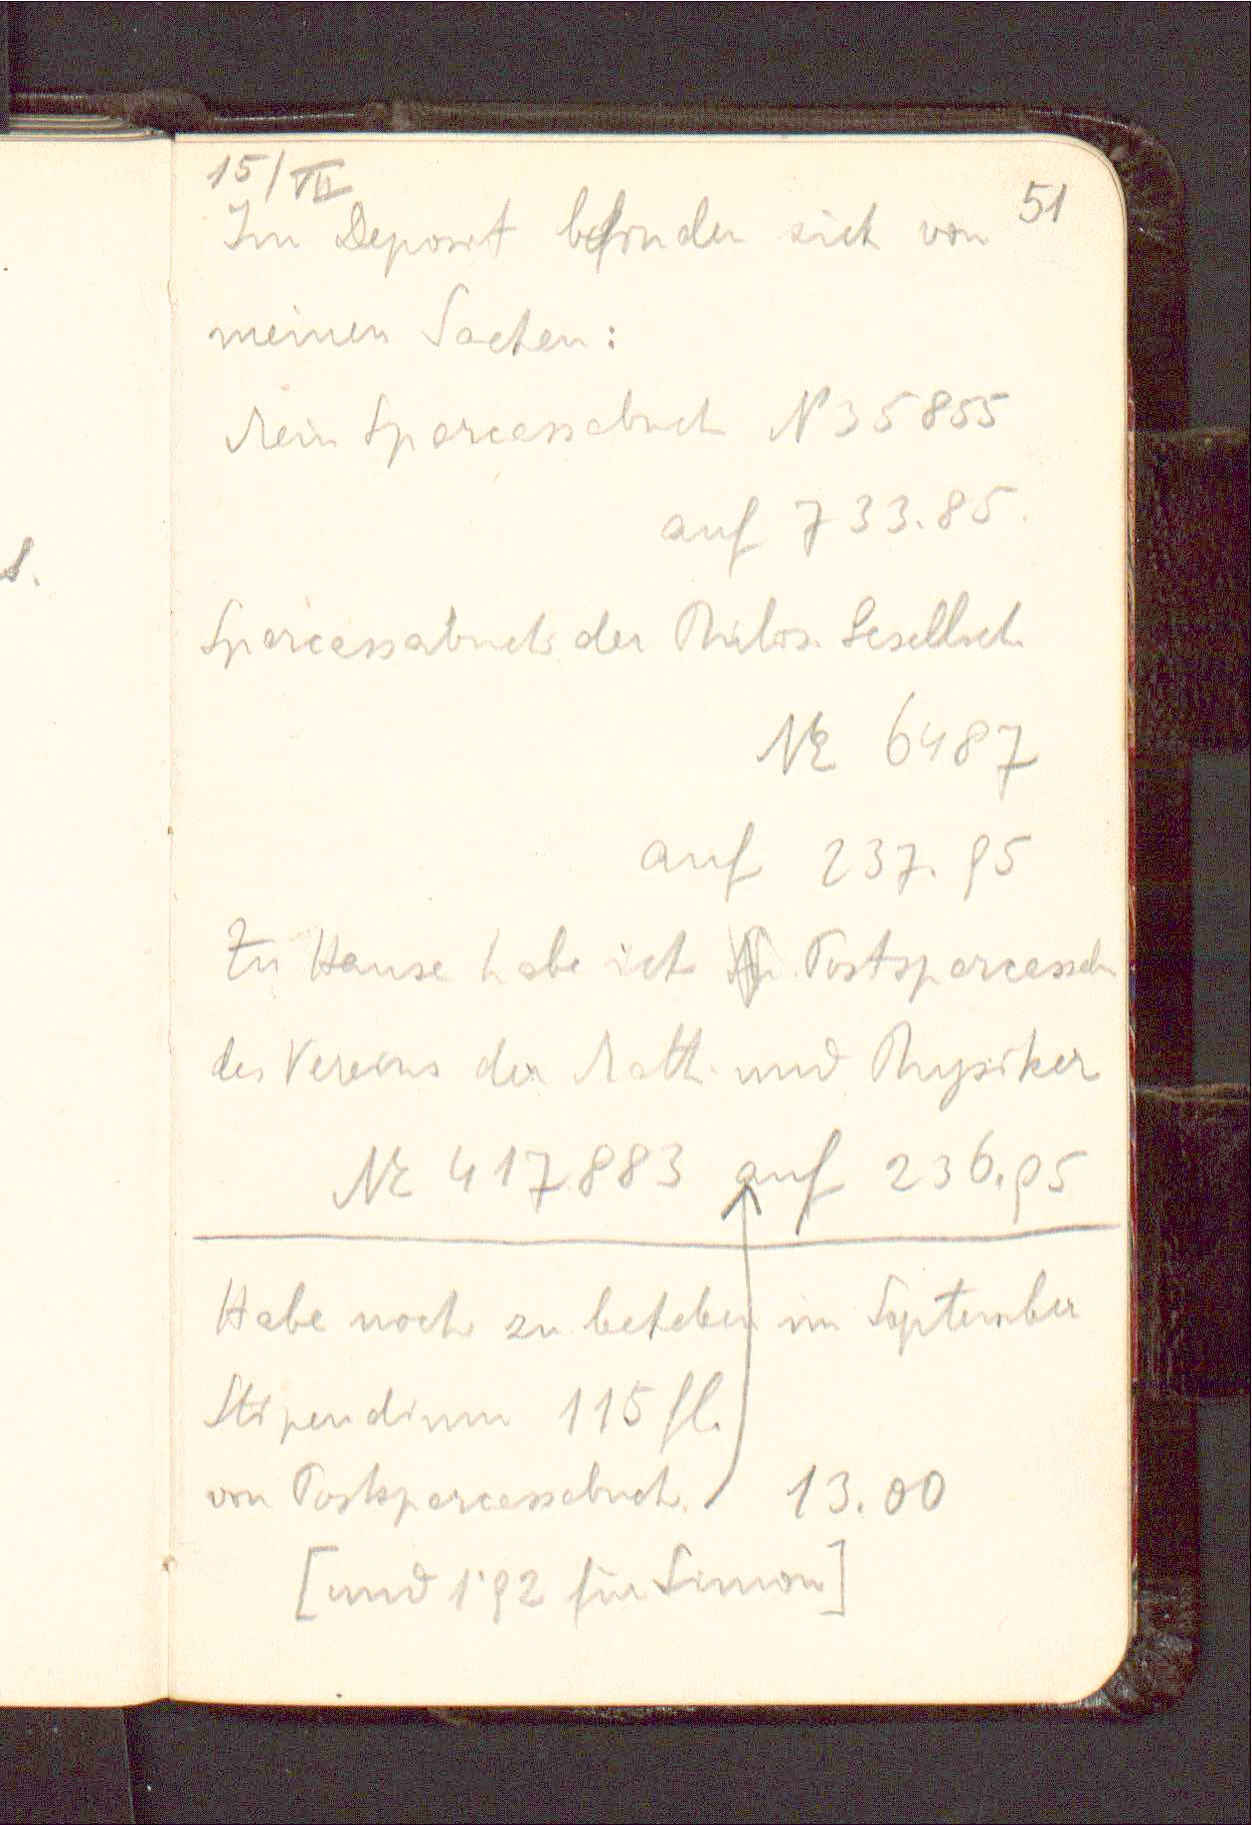 15/VII
51
Im Deposit befinden sich von
meinen Sachen:
Mein Sparcassabuch N 35855
auf 733.85.
Sparcassabuch der Philos. Gesellsch
Nr 6487
auf 237.95
Zu Hause habe ich Postsparcassab
des Vereins der Math. und Physiker
Nr 417883 auf 236.95
Habe noch zu beheben im September
Stipendium 115 fl.
von Postsparcassabuch. 13.00
[und 1·92 für Simon]
s.